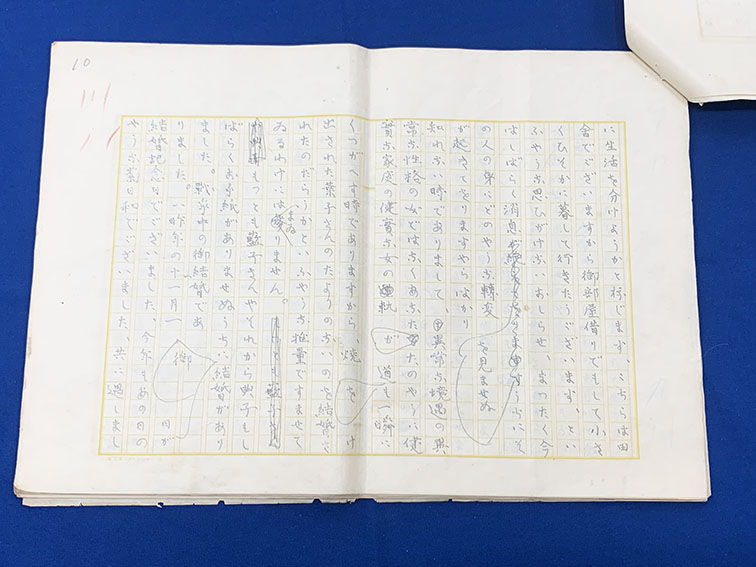 10
に生活を分けようかと存じます、こちらは田
舎でございますから御部屋借りでもして小さ
くひそかに暮して行きたうございます、とい
ふやうな思ひがけないおしらせ、まつたく今
はしばらく消息が絶えてをりますうちにそ
の人の身にどのやうな轉変
を見ませぬ
が起きてをりますやらはかり
知れない時でありまして、異常な境遇の異
常な性格の女ではなくあなたのやうに健
實な家庭の健實な女の軌が道も一瞬に
くつがへす時でありますから、焼をけ
出された葉子さんのたよりのないのを結婚な
れたのだらうかといふやうな推量ですませて
ゐるわけにはまゐりません。
もつとも敏子さんやそれから典子もし
ばらくお手紙がありませぬうちに結婚があり
ました。戦争中の御結婚であ
りました。一昨年の十一月一
御
日が
結婚記念日でございました、今年もあの日の
やうな菊日和でございました、共に過しまし